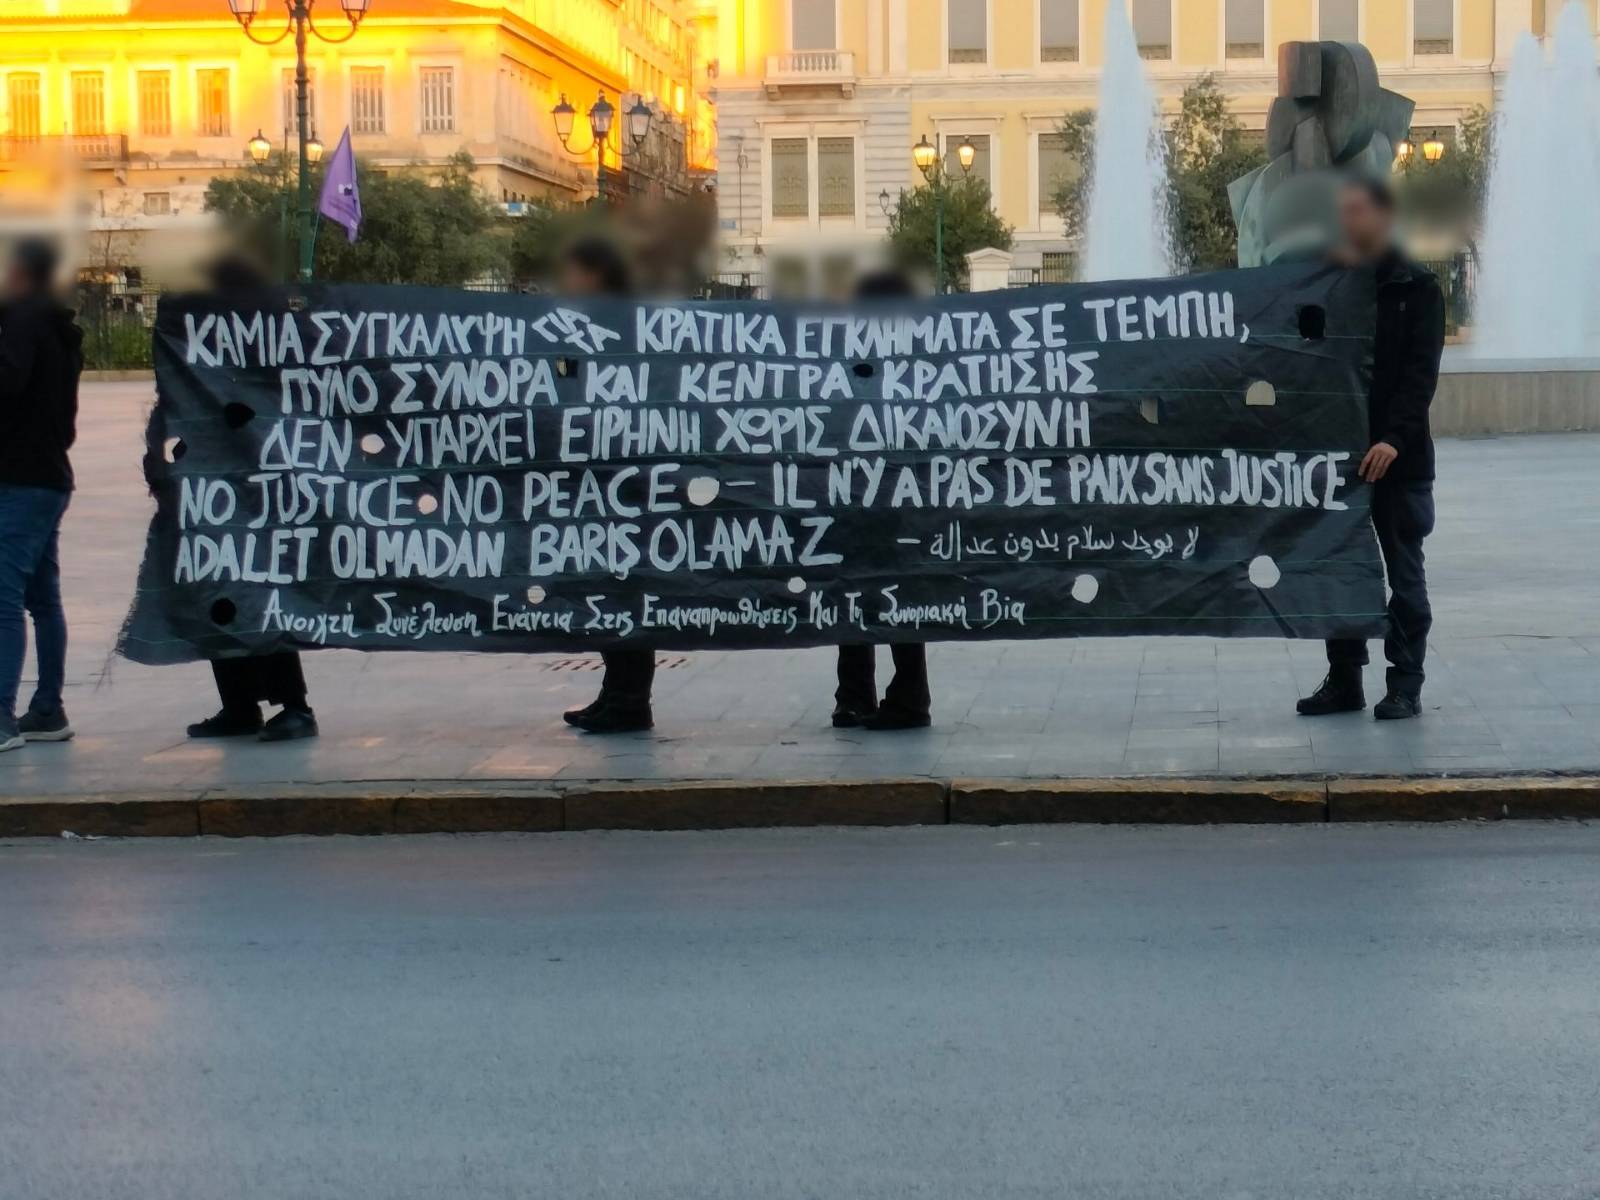 ΚΑΜΙΑ ΣΥΓΚΑΛΥΨΗ ΓΙΑ ΤΑ ΚΡΑΤΙΚΑ ΕΓΚΛΗΜΑΤΑ ΣΕ ΤΕΜΠΗ,
ΠΥΛΟ ΣΥΝΟΡΑ ΚΑΙ ΚΕΝΤΡΑ ΚΡΑΤΗΣΗΣ
ΔΕΝ ΥΠΑΡΧΕΙ ΕΙΡΗΝΗ ΧΩΡΙΣ ΔΙΚΑΙΟΣΥΝΗ
NO JUSTICE NO PEACE - IL N'Y A PAS DE PAIX SANS JUSTICE
ADALET OLMADAN BARIŞ OLAMAZ - لا يوجد سلام بدون عدالة
Ανοιχτή Συνέλευση Ενάντια Στις Επαναπροωθήσεις Και Τη Συνοριακή Βία